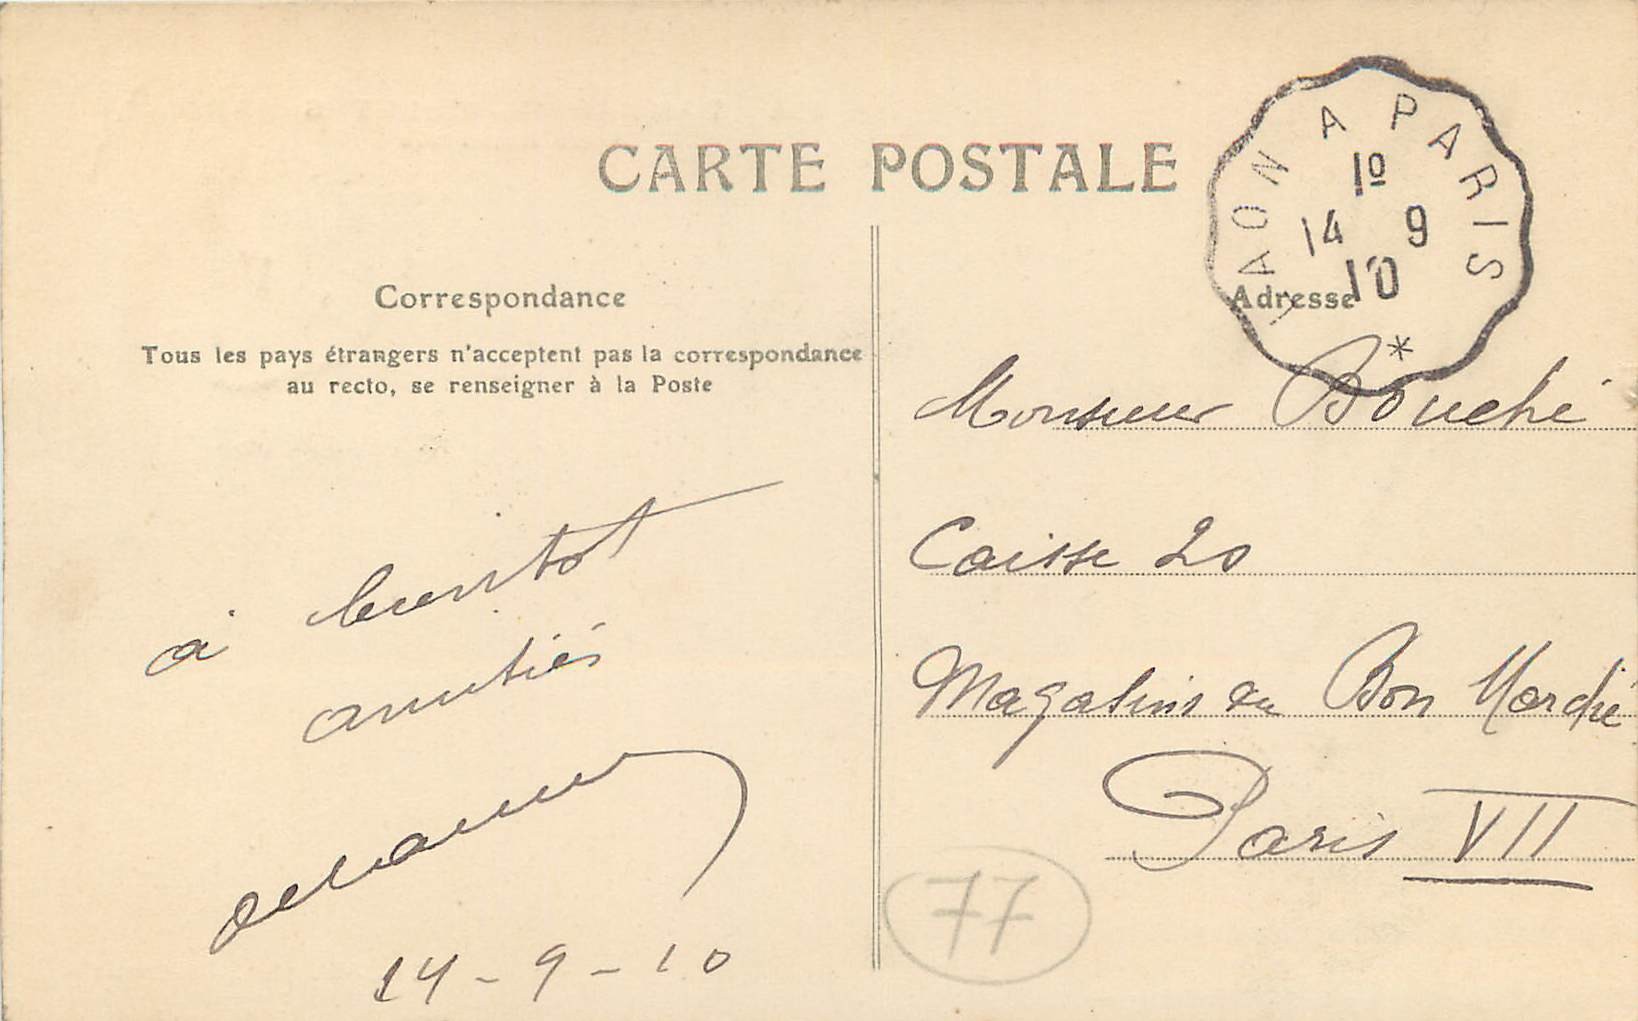 CARTE POSTALE
Correspondance
Tous les pays étrangers n'acceptent pas la correspondance
au recto, se renseigner à la Poste
à bientot
amitiés
14-9-10
LAON A PARIS
1º
14 9
10
*
Adresse
Monsieur Bouché
Caisse 20
Magasins au Bon Marché
Paris VII
77